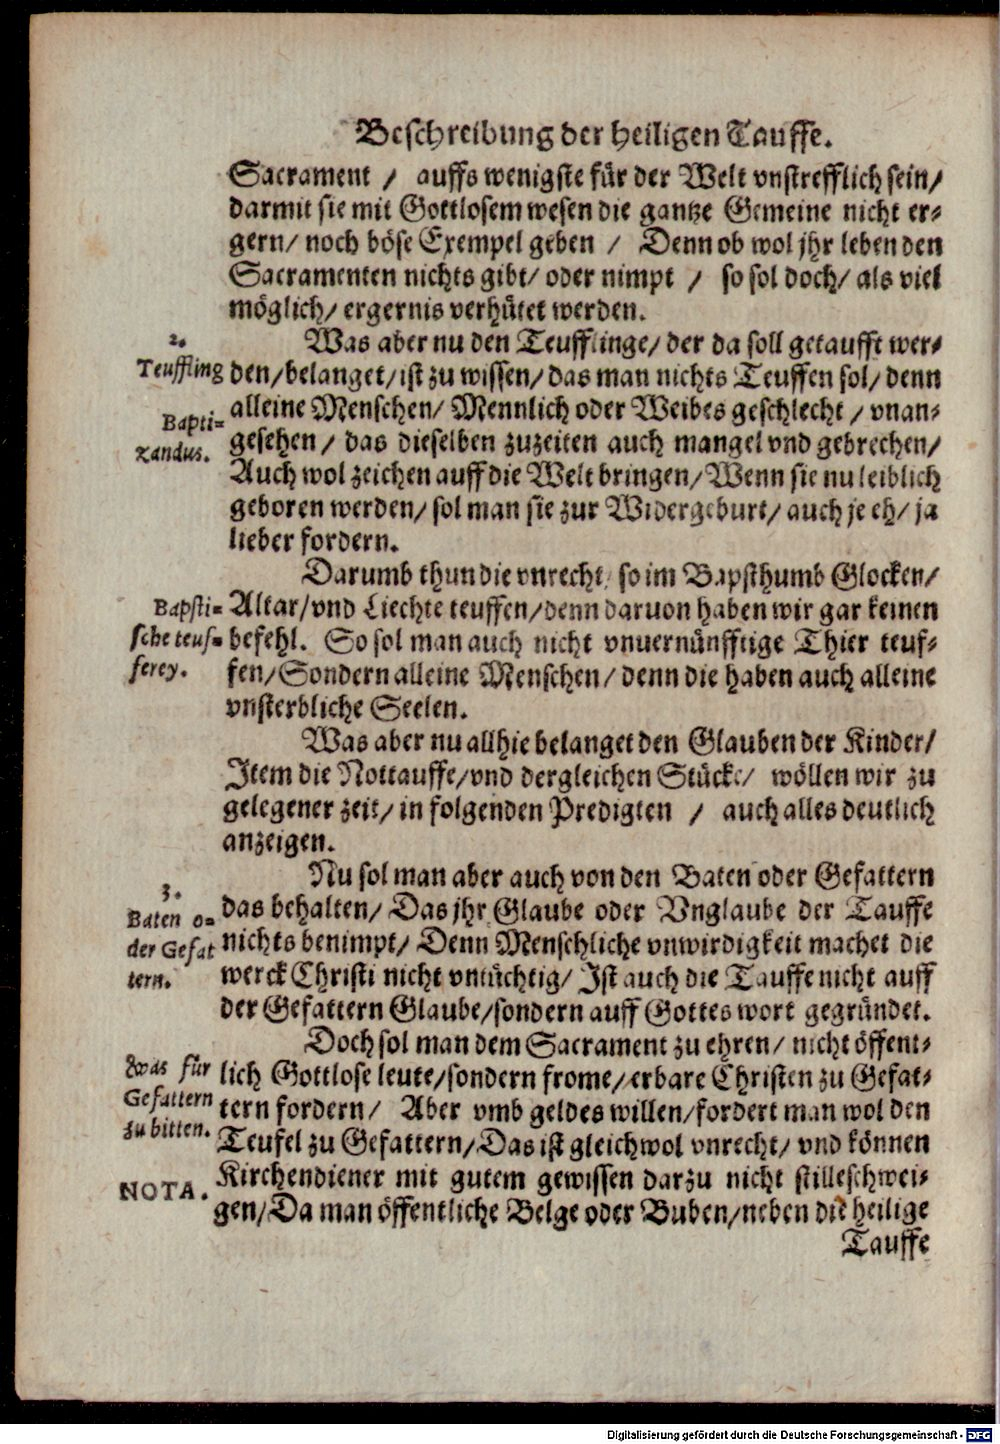 Beschreibung der heiligen Tauffe.
Sacrament / auffs wenigste für der Welt vnstrefflich sein/
darmit sie mit Gottlosem wesen die gantze Gemeine nicht er-
gern/ noch böse Exempel geben / Denn ob wol jhr leben den
Sacramenten nichts gibt/ oder nimpt / so sol doch/ als viel
möglich/ ergernis verhütet werden.
2.
Teuffling
Bapti-
zandus.
Was aber nu den Teufflinge/ der da soll getaufft wer-
den/ belanget/ ist zu wissen/ das man nichts Teuffen sol/ denn
alleine Menschen/ Mennlich oder Weibes geschlecht / vnan-
gesehen / das dieselben zuzeiten auch mangel vnd gebrechen/
Auch wol zeichen auff die Welt bringen/ Wenn sie nu leiblich
geboren werden/ sol man sie zur Widergeburt/ auch je eh/ ja
lieber fordern.
Bapsti-
sche teuf-
ferey.
Darumb thun die vnrecht/ so im Bapsthumb Glocken/
Altar/ vnd Liechte teuffen/ denn daruon haben wir gar keinen
befehl. So sol man auch nicht vnuernünfftige Thier teuf-
fen/ Sondern alleine Menschen/ denn die haben auch alleine
vnsterbliche Seelen.
Was aber nu allhie belanget den Glauben der Kinder/
Item die Nottauffe/ vnd dergleichen Stücke/ wöllen wir zu
gelegener zeit/ in folgenden Predigten / auch alles deutlich
anzeigen.
3.
Baten o-
der Gefat
tern.
Nu sol man aber auch von den Baten oder Gefattern
das behalten/ Das jhr Glaube oder Vnglaube der Tauffe
nichts benimpt/ Denn Menschliche vnwirdigkeit machet die
werck Christi nicht vntüchtig/ Ist auch die Tauffe nicht auff
der Gefattern Glaube/ sondern auff Gottes wort gegründet.
Was für
Gefattern
zu bitten.
NOTA.
Doch sol man dem Sacrament zu ehren/ nicht öffent-
lich Gottlose leute/ sondern frome/ erbare Christen zu Gefat-
tern fordern/ Aber vmb geldes willen/ fordert man wol den
Teufel zu Gefattern/ Das ist gleichwol vnrecht/ vnd können
Kirchendiener mit gutem gewissen darzu nicht stilleschwei-
gen/ Da man öffentliche Belge oder Buben/ neben die heilige
Tauffe
Digitalisierung gefördert durch die Deutsche Forschungsgemeinschaft - DFG